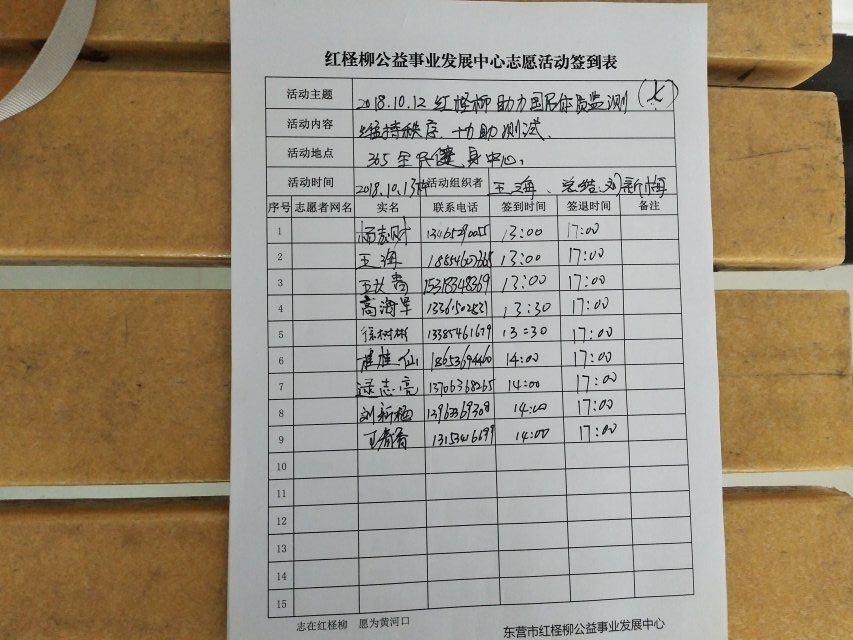 红柽柳公益事业发展中心志愿活动签到表
活动主题 2018.10.12 红柽柳助力国民体质监测
活动内容 维持秩序、协助测试、
活动地点 365全民健身中心。
活动时间 2018.10.13 活动组织者 王海、总结:刘新梅
序号 志愿者网名 实名 联系电话 签到时间 签退时间 备注
1 杨志财 13:00 17:00
2 王海 13:00 17:00
3 15318348369 13:00 17:00
4 高海军 13:30 17:00
5 徐树彬 13385461679 13:30 17:00
6 18653694460 14:00 17:00
7 志亮 13706368265 14:00 17:00
8 刘新梅 14:00 17:00
9 14:00 17:00
10
11
12
13
14
15
志在红柽柳 愿为黄河口
东营市红柽柳公益事业发展中心